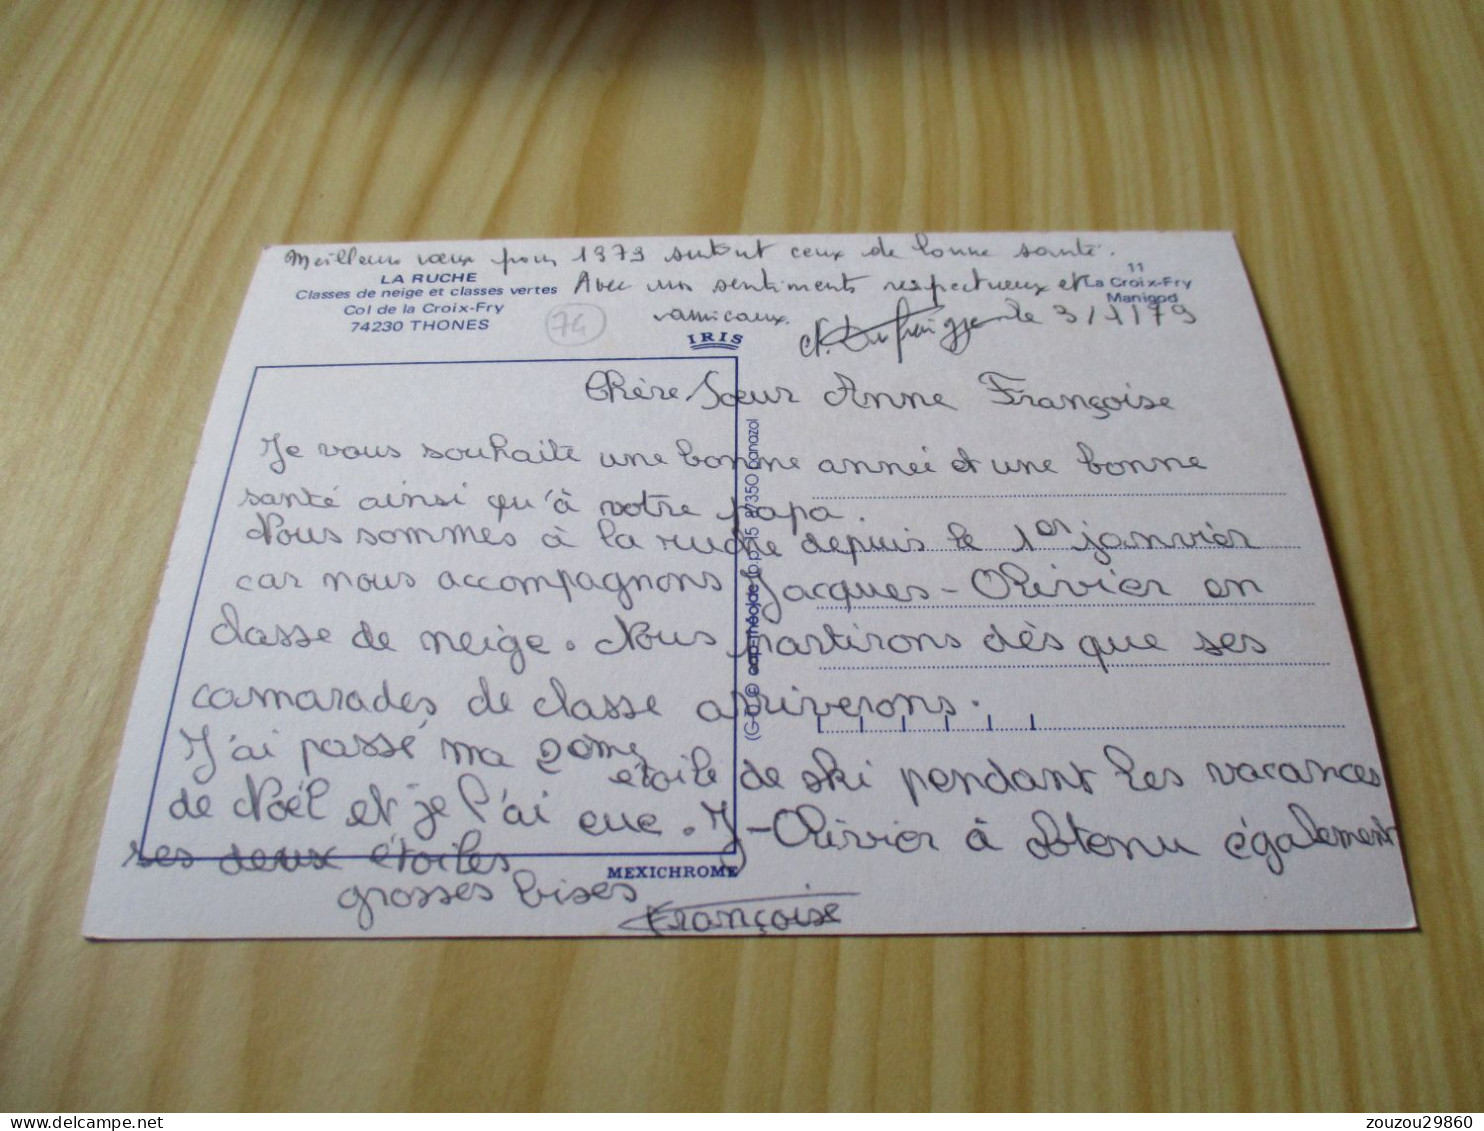 Meilleurs vœux pour 1979 surtout ceux de bonne santé.
LA RUCHE
Classes de neige et classes vertes
Col de la Croix-Fry
74230 THONES
74
Avec mes sentiments respectueux et
amicaux.
11
La Croix-Fry
Manigod
le 3/1/79
IRIS
Chère Sœur Anne Françoise
Je vous souhaite une bonne année et une bonne
santé ainsi qu'à votre papa.
Nous sommes à la ruche depuis le 1er janvier
car nous accompagnons Jacques-Olivier en
classe de neige. Nous partirons dès que ses
camarades de classe arriverons.
J'ai passé ma 2ème
étoile de ski pendant les vacances
de Noël et je l'ai eue. J-Olivier à obtenu également
ses deux étoiles
grosses bises
Françoise
MEXICHROME
(G-D) © cap-théojac b.p. 15 87350 panazol
zouzou29860